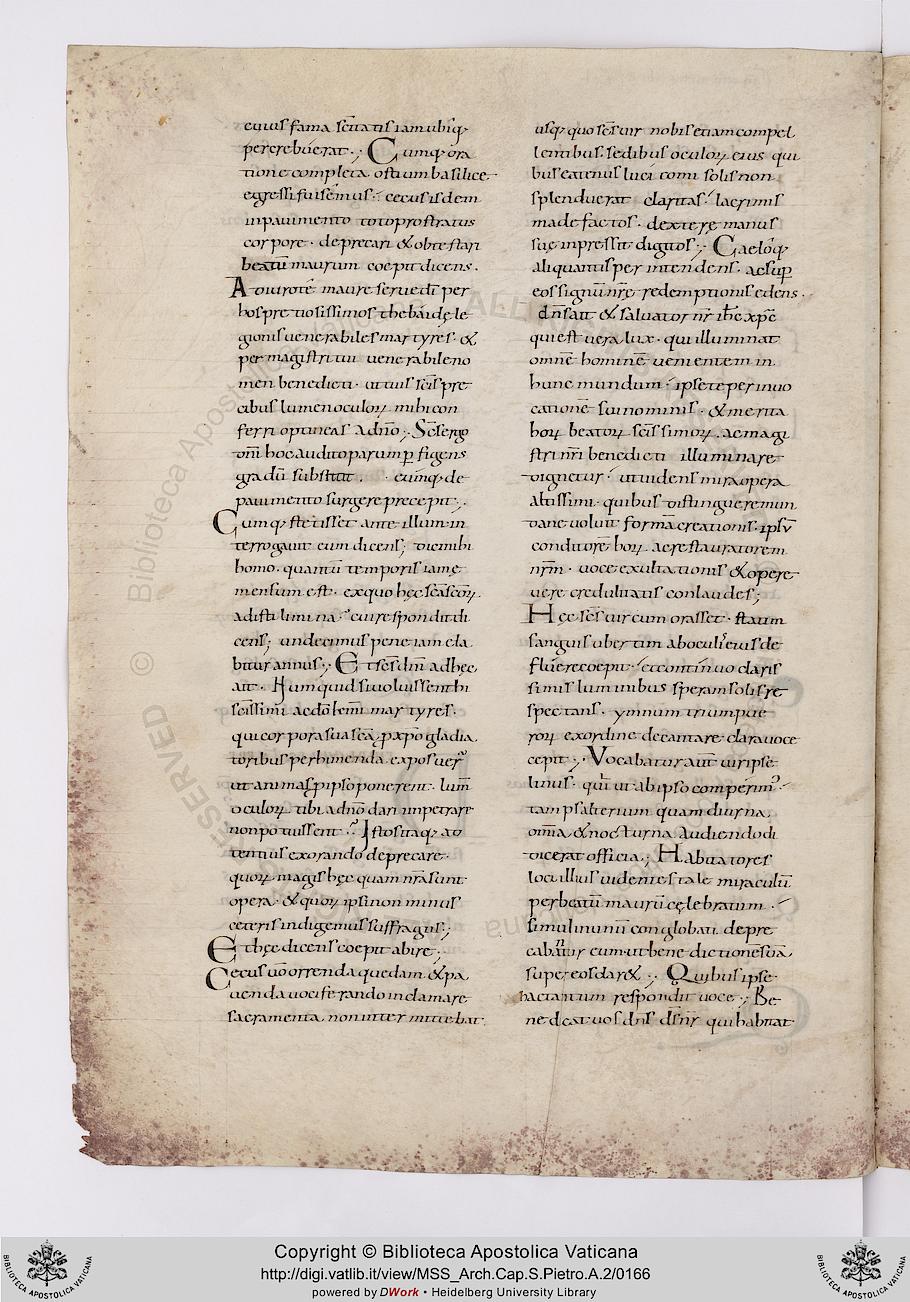 cuius fama scitatis iam ubiq;
percrebuerat ·; Cumq; ora
tione completa. ostium basilice
egressi fuissemus · cecus isdem
inpauimento toto prostratus
corpore · deprecari & obtestari
beatū maurum coepit dicens ·
Adiuro te maure serue dī per
hos pretiosissimos thebaidę le
gionis uenerabiles martyres · &
per magistri tui uenerabile no
men benedicti · ut tuis scīs pre
cibus lumen oculoꝝ mihi con
ferri optineas a dnō ·; Scs ergo
hoc audito parump figens
gradū substitit · cumq; de
pauimento surgere precepit ·;
Cumq; stetisset ante illum in
terrogauit eum dicens; dic mihi
homo · quantū temporis iam ę
mensum est · ex quo hęc scā scōꝝ
adisti limina · cui respondit di
cens; undecimus pene iam ela
bitur annus ·; Et scs dnī ad hęc
ait · Numquid si uoluissent hi
scissimi ac dō martyres ·
qui corpora sua p xpō gladia
toribus perhimenda exposuer
ut animas p ipso ponerent · lum
oculoꝝ tibi a dnō dari impetrare
non potuissent · Istos itaq; at
tentius exorando deprecare ·
quoꝝ magis hęc quam nrā sunt
opera · & quoꝝ ipsi non minus
ceteris indigemus suffragiis;
Et hęc dicens coepit abire;
Cecus uō orrenda quedam & pa
uenda uociferando inclamare
sacramenta non inter mittebat
usq; quo scs uir nobis etiam compel
lentibus · sedibus oculoꝝ eius qui
bus eatenus luci comi solis non
splenduerat claritas · lacrimis
madefactos · dextere manus
suę inpressit digitos ·; Caeloq;
aliquantisper intendens · ac sup
eos signū nrē redemptionis edens ·
dns att & saluator nr ihc xpe
qui est uera lux · qui illuminat
omnē hominē uenientem in
hunc mundum · ipse te per inuo
cationē sui nominis · & merita
hoꝝ beatoꝝ scissimoꝝ · ac magi
stri nri benedicti illuminare
dignetur · ut uidens mira opera
altissimi · quibus distinguere mun
dane uoluit formā creationis · ipsū
conditorē hoꝝ ac restauratorem
nrm · uoce exultationis & opere
uere credulitatis conlaudes;
Hęc scs uir cum orasset · statim
sanguis ubertim ab oculis eius de
fluere coepit · et continuo claris
simis luminibus speram solis re
spectans · ymnum trium pue
roꝝ ex ordine decantare clara uoce
cepit ·; Vocabatur aut uir ipse
linus · qui ut ab ipso comperim
tam psalterium quam diurna
omīa & nocturna audiendo di
dicerat officia ·; Habitatores
loci illius uidentes tale miraculū
per beatum maurū celebratum ·
simul in unū conglobati depre
cabantur eum · ut benedictione suā
super eos dar& ·; Quibus ipse
tactantum respondit uoce ·; Be
nedicat uos dns ds nr qui habitat
Copyright © Biblioteca Apostolica Vaticana
http://digi.vatlib.it/view/MSS_Arch.Cap.S.Pietro.A.2/0166
powered by DWork • Heidelberg University Library